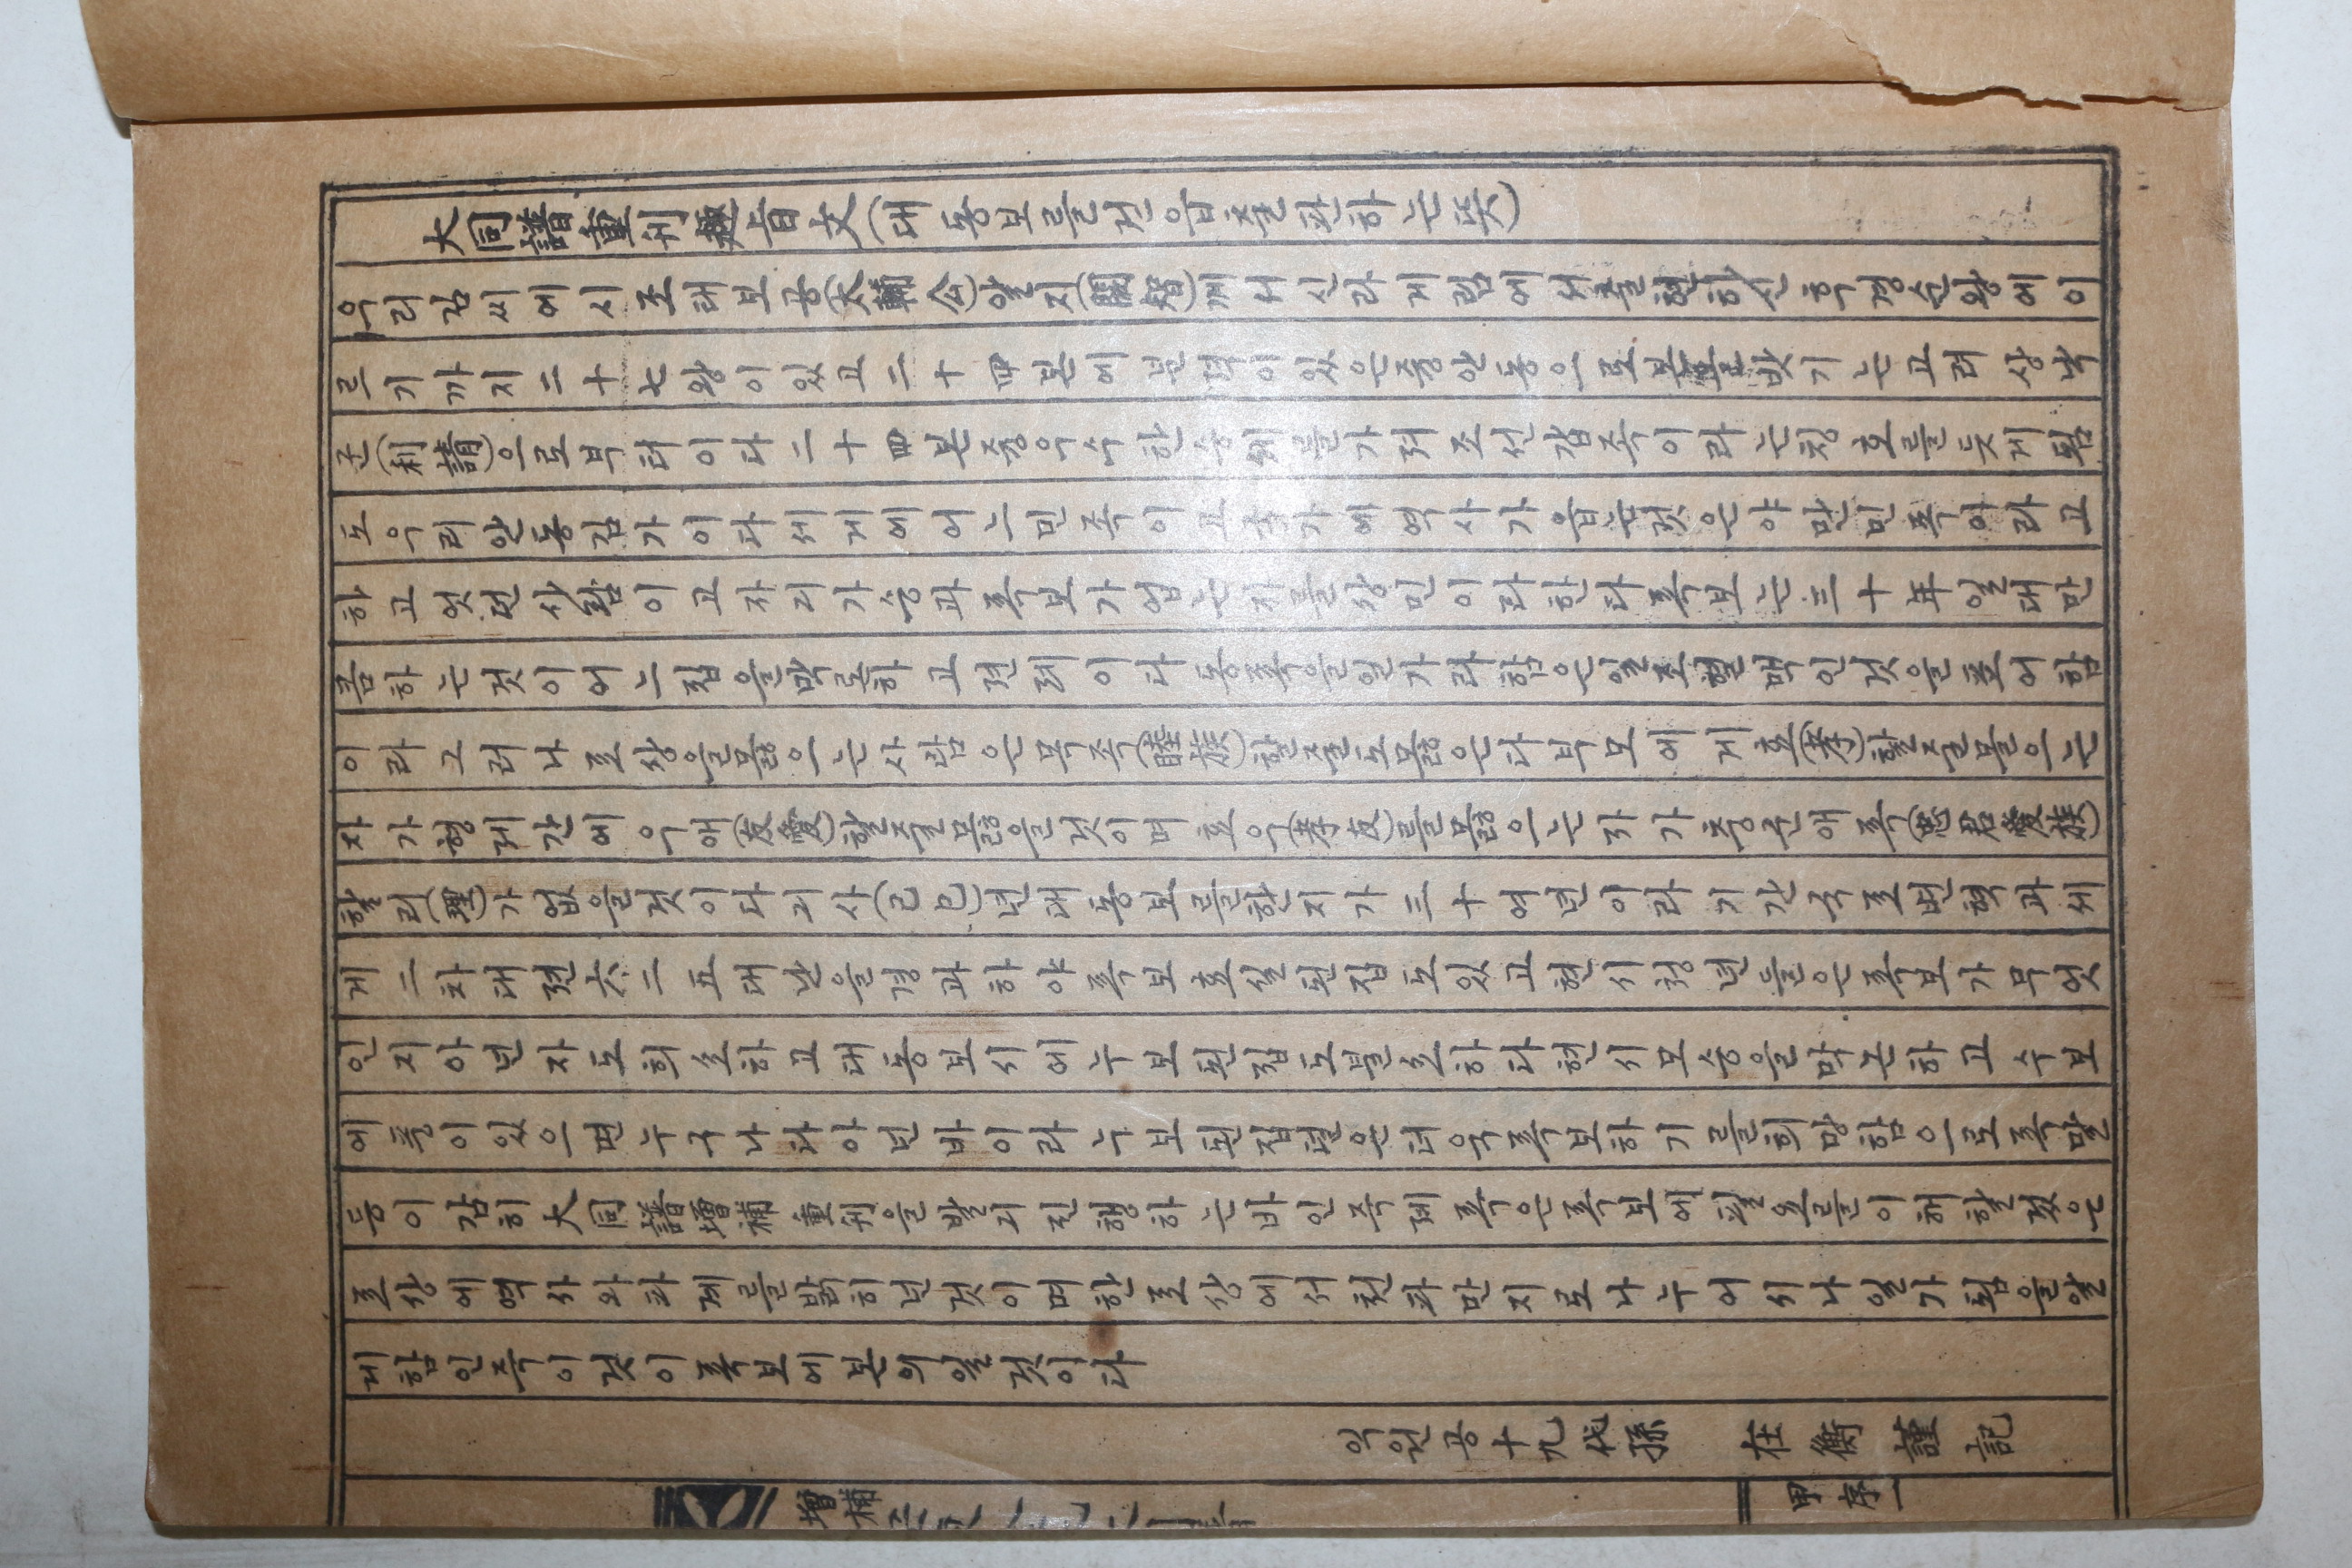 大同譜重刊趣旨文(대동보를건윱출판하는뜻)
우리김씨에시조태보공(太輔公)알지(閼智)께서신라게림에서출현하신후경순왕에이
르기까지二十七왕이있고二十四본에분덕이있은중안동으로본을밧기는고려상낙
군(利請)으로부터이다二十四본중우수한승체를가져조선갑족이라는칭호를듯게됨
도우리안동김가이다세게에어느민족이고국가에역사가읍는것은야만민족이라고
하고엇던사람이고자긔가승과족보가업는자를상민이라한다족보는三十年일대만
큼하는것이어느집을막론하고젼례이다동족을일가라함은일조혈맥인것을표어함
이라그러나조상을몷으는사람은목족(睦族)할줄도몷은다부모에게효(孝)할줄몰으는
자가형제간에우애(友愛)할줄몷을것이며효우(孝友)를몷으는자가충군애족(忠君愛族)
할리(理)가없을것이다긔사(己巳)년대동보를한지가三十여년이라기간국조변혁과세
게二차대젼六二五대난을경과하야족보효실된집도있고현시청년들은족보가무엇
인지아넌자도희소하고대동보시에누보된집도불소하다현시모승을막논하고수보
에풍이있으면누구나다아넌바이라누보된집덜은더욱족보하기를희망함으로족말
등이감히大同譜增補重刊을발긔진행하는바인즉졔족은족보에필요를이해할겄은
조상에역사와파계를밝히넌것이며한조상에서천파만지로나누어시나일가됨을알
게함인즉이것이족보에본의일것이다
익원공十九代孫 在衡謹記
增補
甲序一